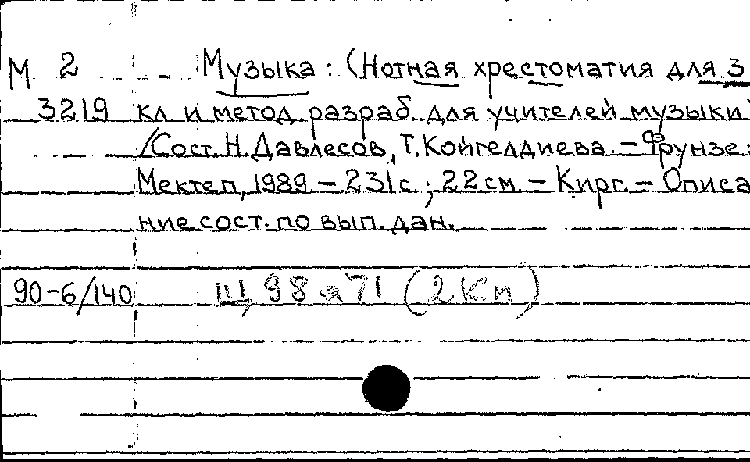 М 2 Музыка: (Нотная хрестоматия для 3
3219 кл и метод. разраб. для учителей музыки
/Сост. Н. Давлесов, Т. Койгелдиева. – Фрунзе:
Мектеп, 1989 – 231с.; 22см. – Кирг. – Описа
ние сост. по вып. дан.
90-6/140 Щ 98 я 71 (2Кп)